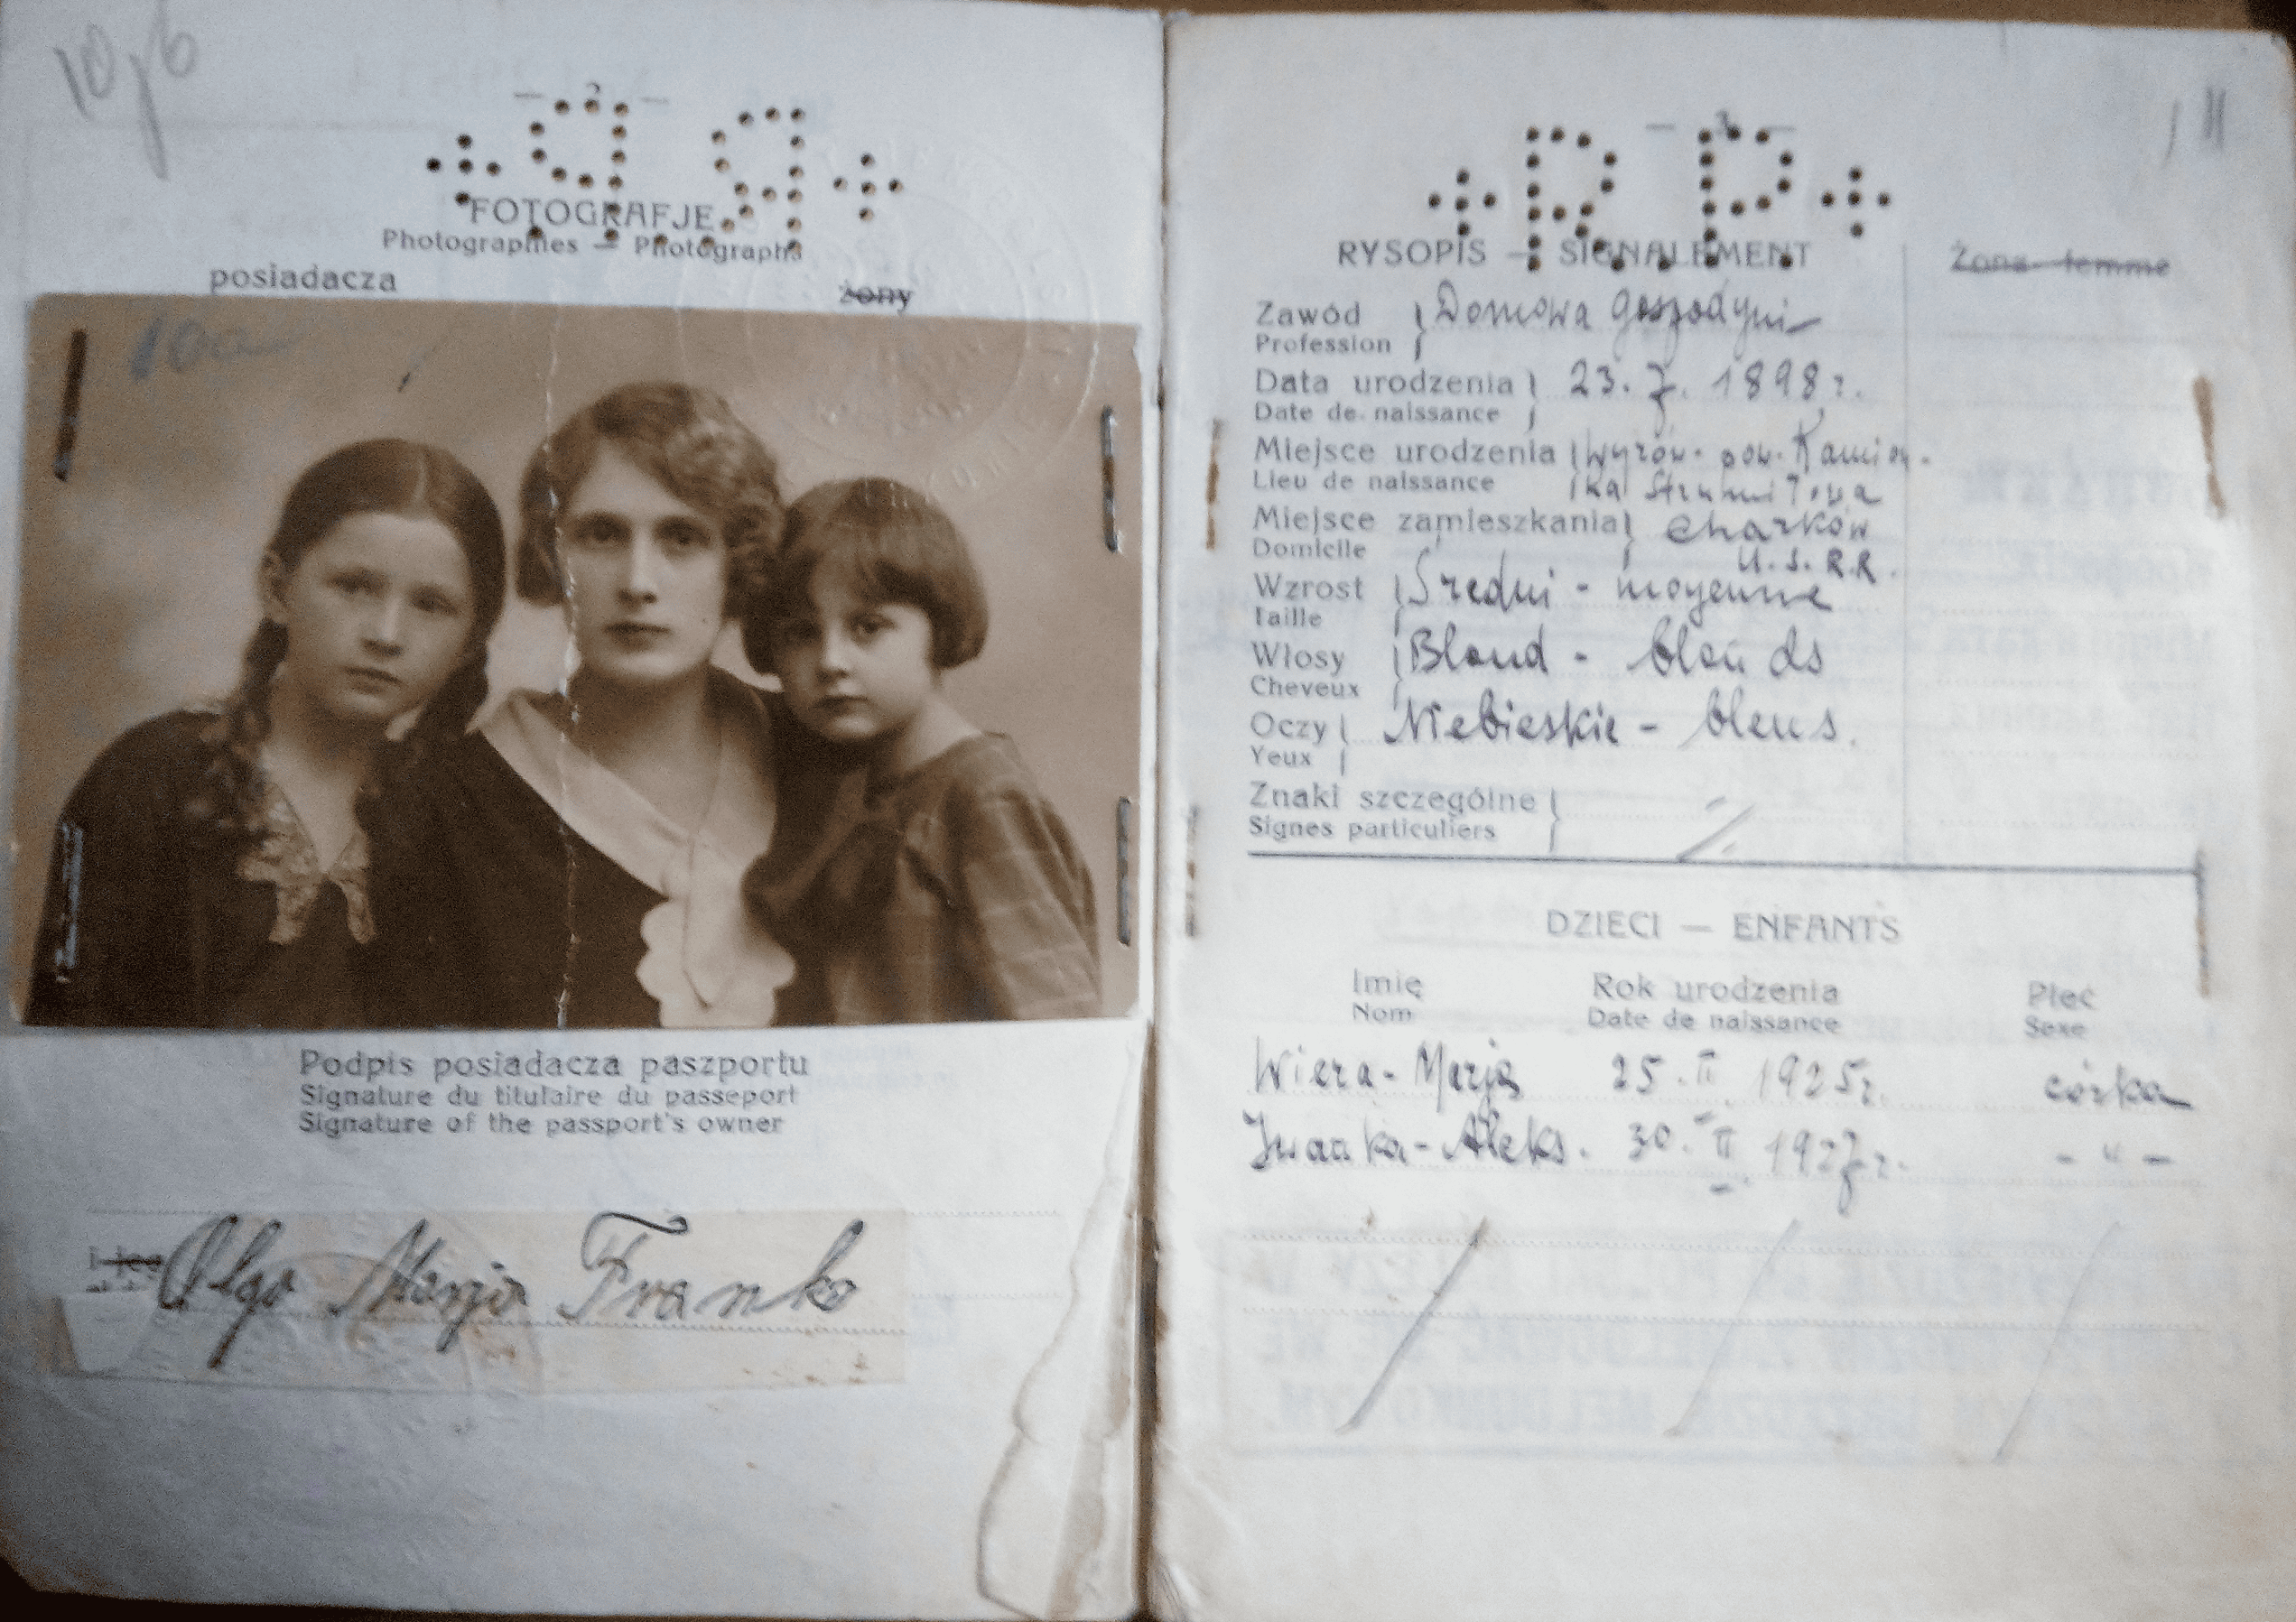 10/6
— 2 —
+ R P +
FOTOGRAFJE
Photographies — Photographs
posiadacza żony
Podpis posiadacza paszportu
Signature du titulaire du passeport
Signature of the passport's owner
Olga Marja Franko
11
— 3 —
+ R P +
RYSOPIS — SIGNALEMENT
Żona - femme
Zawód Domowa gospodyni
Profession
Data urodzenia 23. 7. 1898 r.
Date de naissance
Miejsce urodzenia Wyrów. pow. Kamion-
Lieu de naissance ka Strumiłowa
Miejsce zamieszkania Charków
Domicile U.S.R.R.
Wzrost Średni - moyenne
Taille
Włosy Blond - blonds
Cheveux
Oczy Niebieskie - bleus.
Yeux
Znaki szczególne
Signes particuliers
DZIECI — ENFANTS
Imię Rok urodzenia Płeć
Nom Date de naissance Sexe
Wiera-Marja 25. II 1925 r. córka
Iwanka-Aleks. 30. II 1927 r. - " -